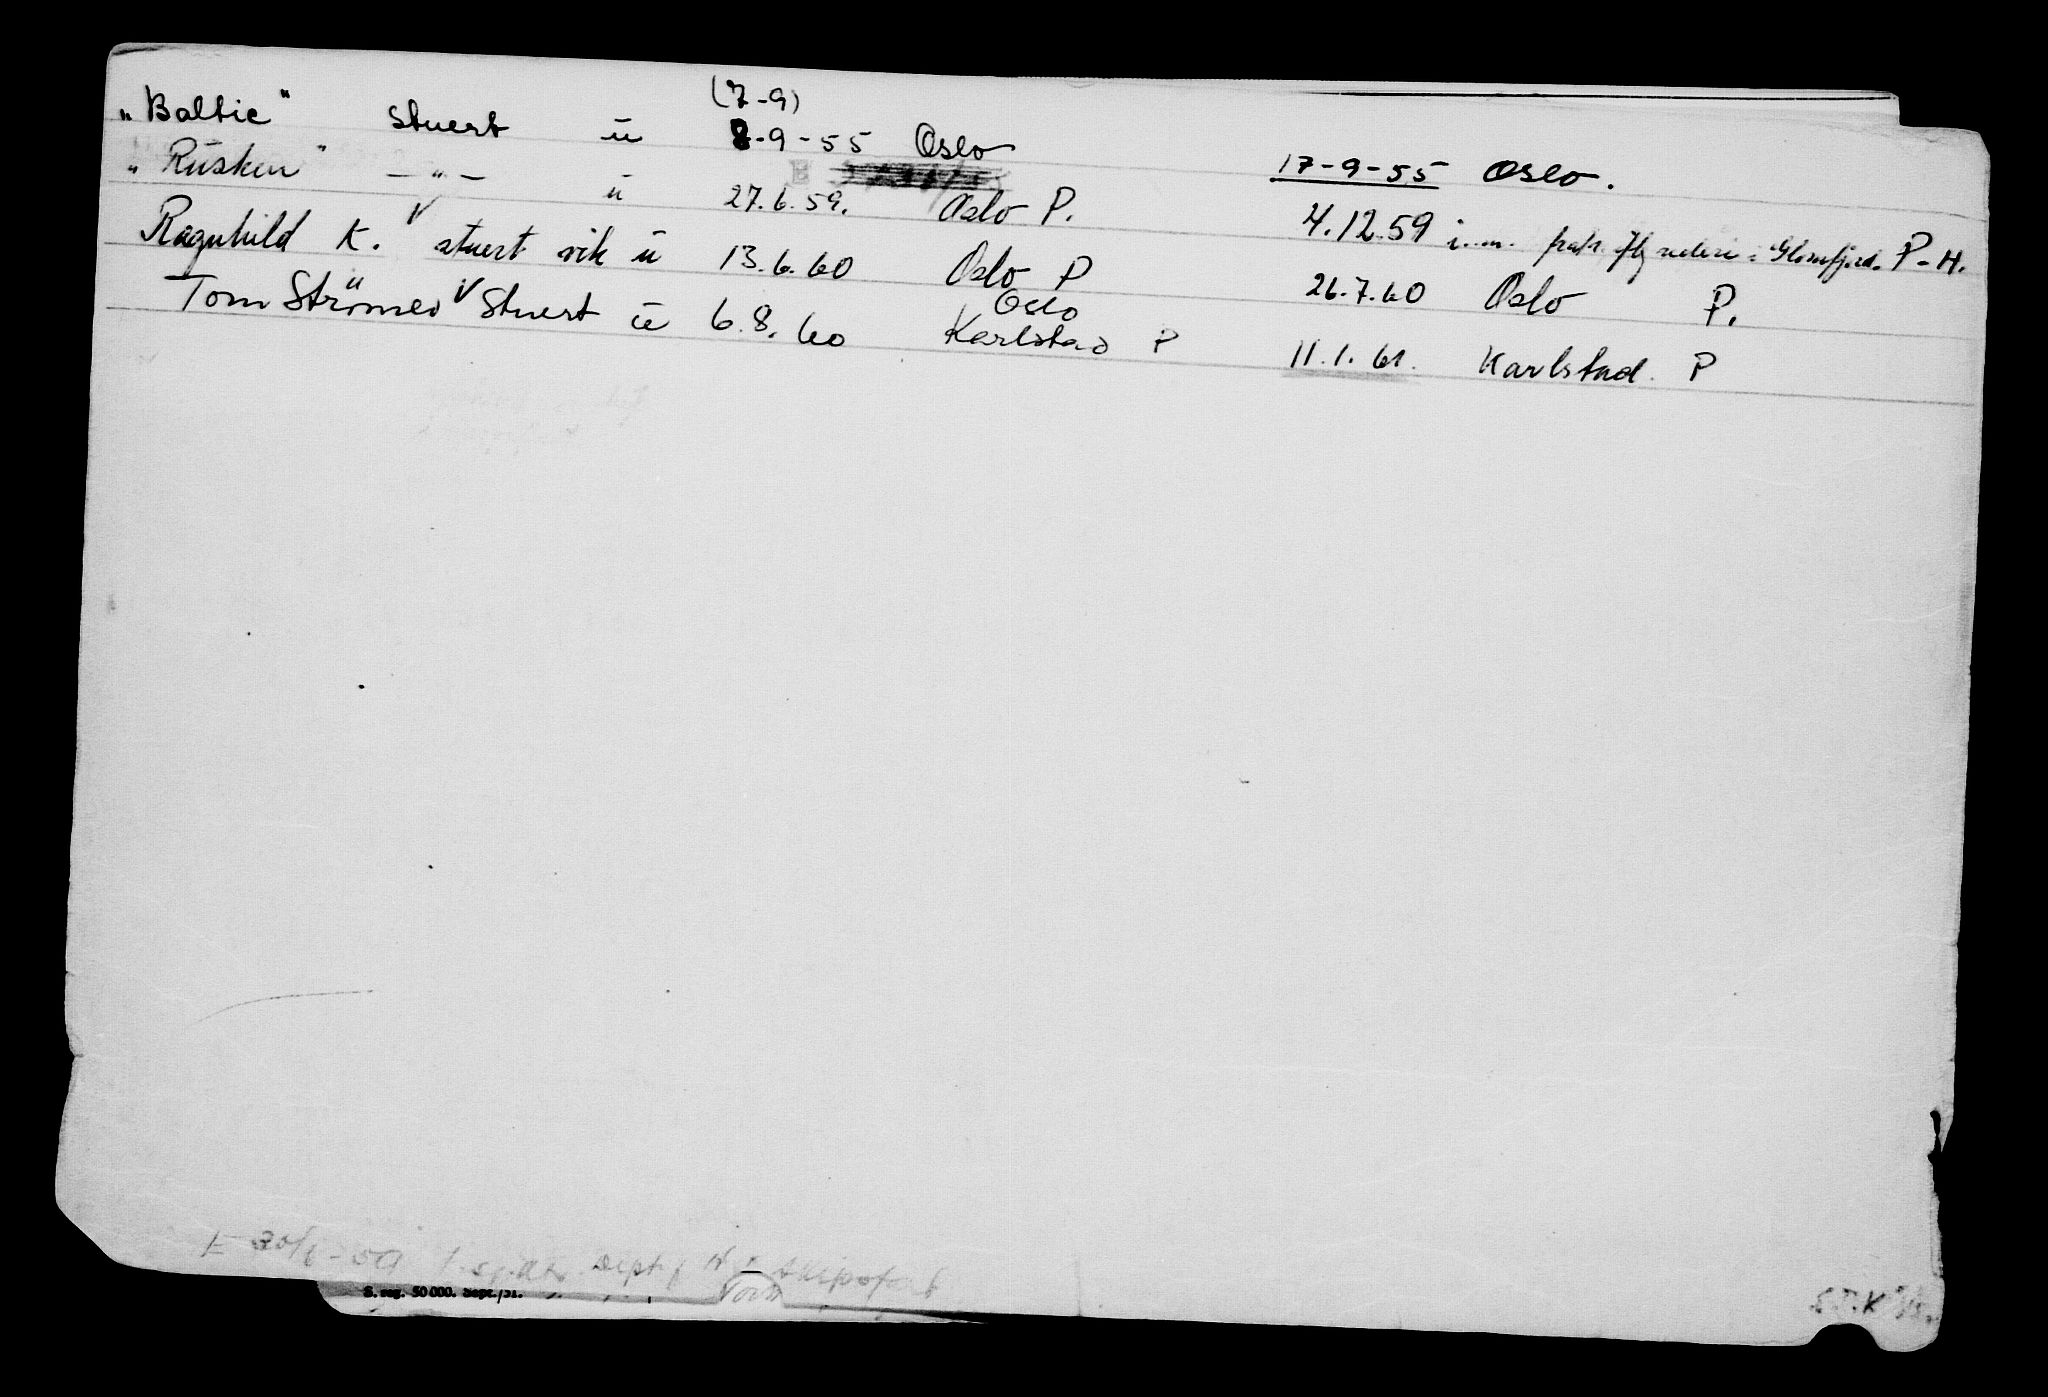 (7-9)
„Baltic" stuert ū 8-9-55 Oslo 17-9-55 Oslo.
„Rusken" -"- ū 27.6.59. Oslo P. 4.12.59 i Glomfjord. P-H.
Ragnhild K. V stuert vik ū 13.6.60 Oslo P 26.7.60 Oslo P.
Oslo
Tom Strømer V Stuert ū 6.8.60 Karlstad P 11.1.61. Karlstad. P
S. reg. 50 000. Sept./51.